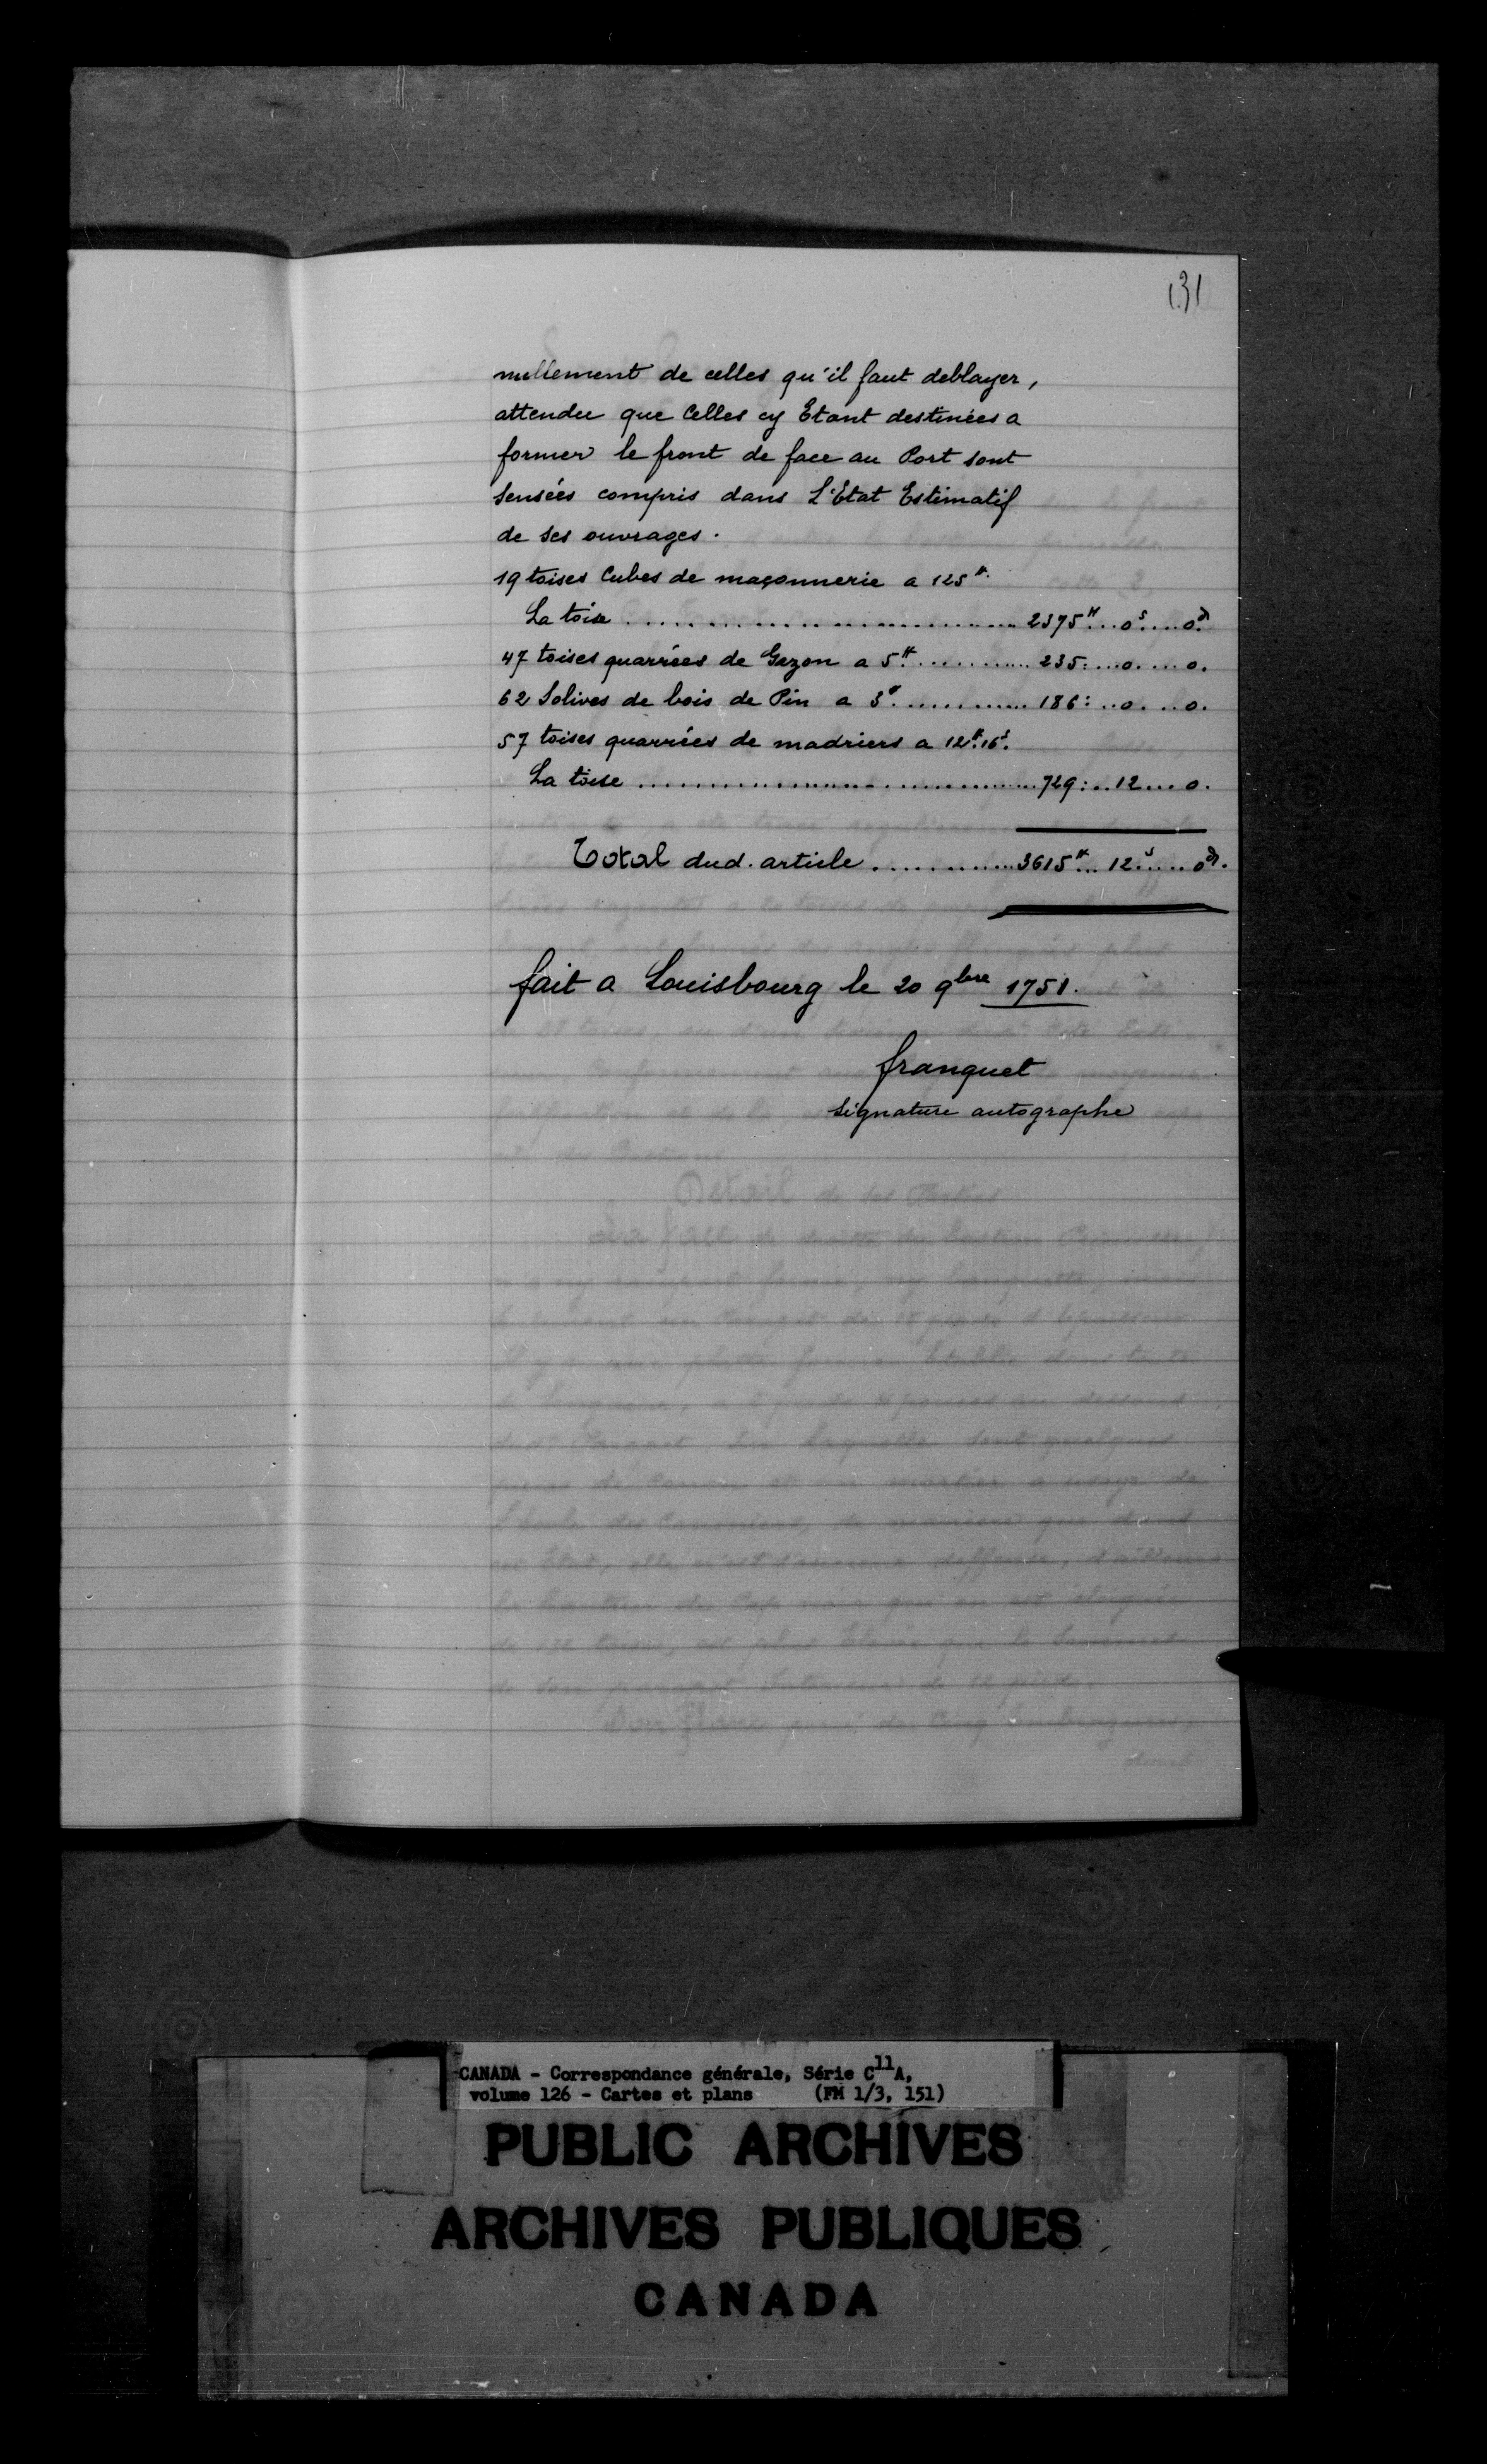 131
nullement de celles qu'il faut deblayer,
attendu que Celles cy Etant destinées a
former le front de face au Port sont
sensées compris dans L'Etat Estimatif
de ses ouvrages.
19 toises Cubes de maçonnerie a 125ᵗᵗ.
La toise .............................. 2375ᵗᵗ...0ˢ....0ᵈ.
47 toises quarrées de Gazon a 5ᵗᵗ............. 235:...0.....0.
62 Solives de bois de Pin a 3ᵗᵗ............. 186:...0....0.
57 toises quarrées de madriers a 12ᵗᵗ.16ˢ.
La toise ..............................729:...12....0.
Total dud. article ............3615ᵗᵗ...12ˢ.....0ᵈ.
fait a Louisbourg le 20 9bre 1751.
franquet
signature autographe
CANADA - Correspondance générale, Série C11A,
volume 126 - Cartes et plans (FM 1/3, 151)
PUBLIC ARCHIVES
ARCHIVES PUBLIQUES
CANADA